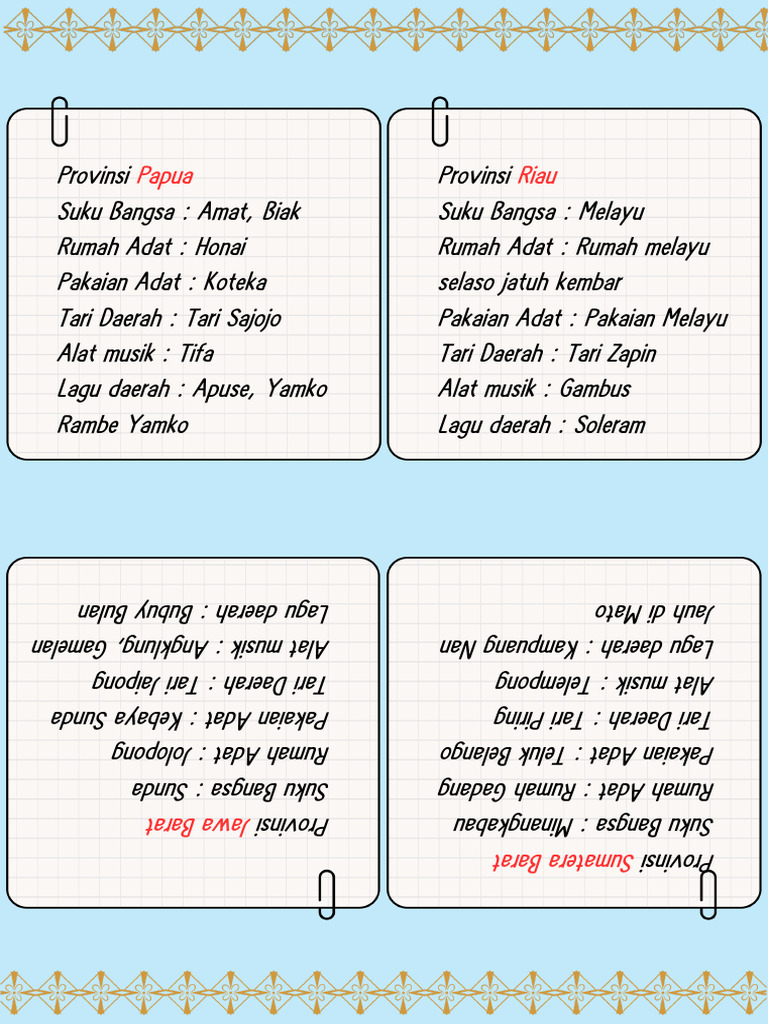 Provinsi Papua
Suku Bangsa : Amat, Biak
Rumah Adat : Honai
Pakaian Adat : Koteka
Tari Daerah : Tari Sajojo
Alat musik : Tifa
Lagu daerah : Apuse, Yamko
Rambe Yamko
Provinsi Riau
Suku Bangsa : Melayu
Rumah Adat : Rumah melayu
selaso jatuh kembar
Pakaian Adat : Pakaian Melayu
Tari Daerah : Tari Zapin
Alat musik : Gambus
Lagu daerah : Soleram
Provinsi Jawa Barat
Suku Bangsa : Sunda
Rumah Adat : Jolopong
Pakaian Adat : Kebaya Sunda
Tari Daerah : Tari Jaipong
Alat musik : Angklung, Gamelan
Lagu daerah : Bubuy Bulan
Provinsi Sumatera Barat
Suku Bangsa : Minangkabau
Rumah Adat : Rumah Gadang
Pakaian Adat : Teluk Belango
Tari Daerah : Tari Piring
Alat musik : Telempong
Lagu daerah : Kampuang Nan
Jauh di Mato